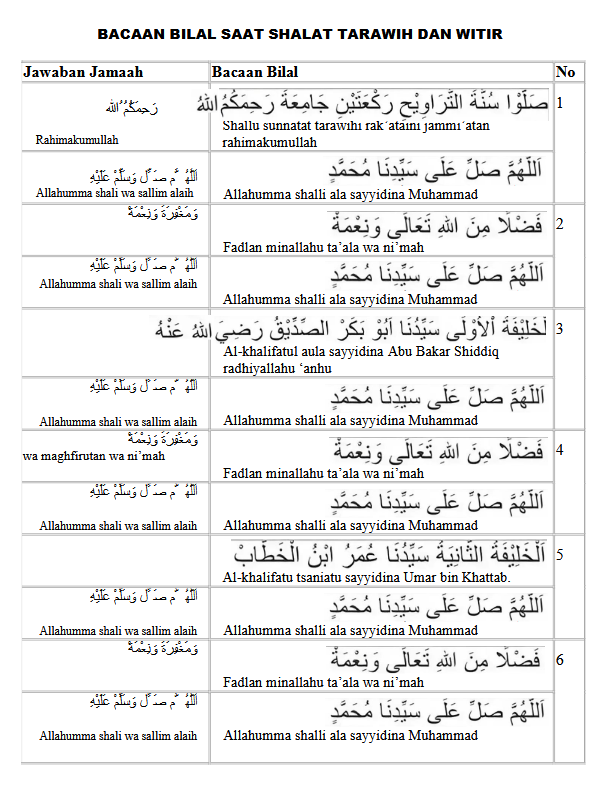 BACAAN BILAL SAAT SHALAT TARAWIH DAN WITIR
Jawaban Jamaah Bacaan Bilal No
رَحِمَكُمُ الله
Rahimakumullah
صَلُّوْا سُنَّةَ التَّرَاوِيْحِ رَكْعَتَيْنِ جَامِعَةَ رَحِمَكُمُ اللهُ
1
Shallu sunnatat tarawihi rak´ataini jammi´atan
rahimakumullah
اَللّٰهُمَّ صَلِّ وَسَلِّمْ عَلَيْهِ
Allahumma shali wa sallim alaih
اَللّٰهُمَّ صَلِّ عَلَى سَيِّدِنَا مُحَمَّدٍ
Allahumma shalli ala sayyidina Muhammad
وَمَغْفِرَةً وَنِعْمَةً
فَضْلًا مِنَ اللهِ تَعَالَى وَنِعْمَةً
2
Fadlan minallahu ta’ala wa ni’mah
اَللّٰهُمَّ صَلِّ وَسَلِّمْ عَلَيْهِ
Allahumma shali wa sallim alaih
اَللّٰهُمَّ صَلِّ عَلَى سَيِّدِنَا مُحَمَّدٍ
Allahumma shalli ala sayyidina Muhammad
لْخَلِيْفَةُ اْلأُوْلَى سَيِّدُنَا اَبُوْ بَكَرْ الصِّدِّيْقُ رَضِيَ اللهُ عَنْهُ
3
Al-khalifatul aula sayyidina Abu Bakar Shiddiq
radhiyallahu ‘anhu
اَللّٰهُمَّ صَلِّ وَسَلِّمْ عَلَيْهِ
Allahumma shali wa sallim alaih
اَللّٰهُمَّ صَلِّ عَلَى سَيِّدِنَا مُحَمَّدٍ
Allahumma shalli ala sayyidina Muhammad
وَمَغْفِرَةً وَنِعْمَةً
wa maghfirutan wa ni’mah
فَضْلًا مِنَ اللهِ تَعَالَى وَنِعْمَةً
4
Fadlan minallahu ta’ala wa ni’mah
اَللّٰهُمَّ صَلِّ وَسَلِّمْ عَلَيْهِ
Allahumma shali wa sallim alaih
اَللّٰهُمَّ صَلِّ عَلَى سَيِّدِنَا مُحَمَّدٍ
Allahumma shalli ala sayyidina Muhammad
اَلْخَلِيْفَةُ الثَّانِيَةُ سَيِّدُنَا عُمَرُ ابْنُ الْخَطَّابْ
5
Al-khalifatu tsaniatu sayyidina Umar bin Khattab.
اَللّٰهُمَّ صَلِّ وَسَلِّمْ عَلَيْهِ
Allahumma shali wa sallim alaih
اَللّٰهُمَّ صَلِّ عَلَى سَيِّدِنَا مُحَمَّدٍ
Allahumma shalli ala sayyidina Muhammad
وَمَغْفِرَةً وَنِعْمَةً
فَضْلًا مِنَ اللهِ تَعَالَى وَنِعْمَةً
6
Fadlan minallahu ta’ala wa ni’mah
اَللّٰهُمَّ صَلِّ وَسَلِّمْ عَلَيْهِ
Allahumma shali wa sallim alaih
اَللّٰهُمَّ صَلِّ عَلَى سَيِّدِنَا مُحَمَّدٍ
Allahumma shalli ala sayyidina Muhammad